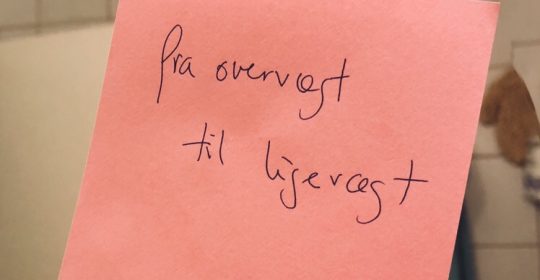 fra overvægt
til ligevægt